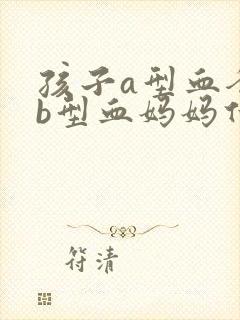 孩子a型血
b型血妈妈
符清